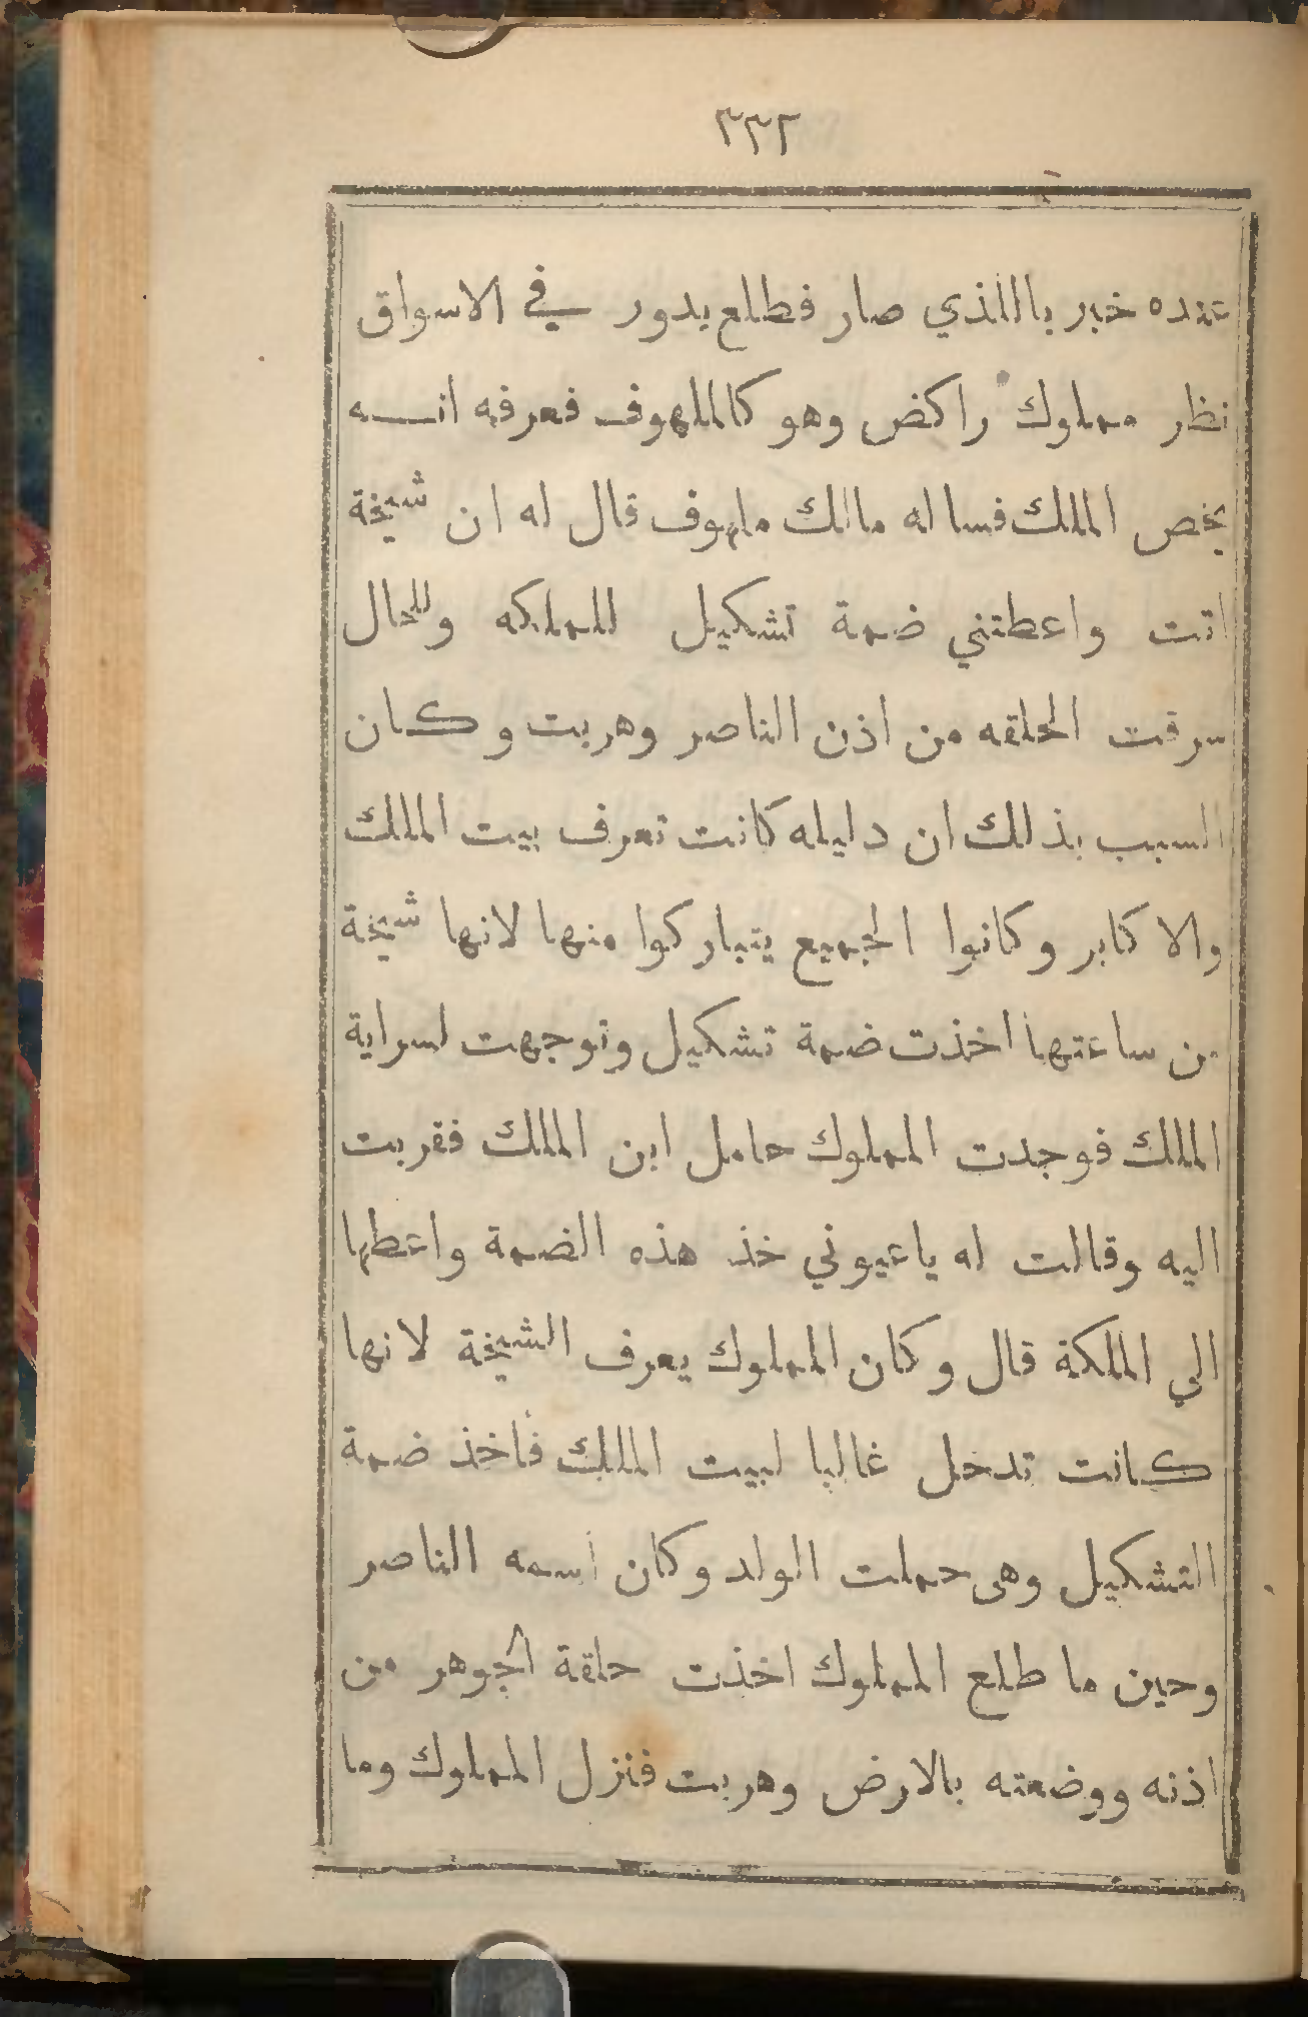 ٣٣٢
عنده خبر باللذي صار فطلع يدور في الاسواق
نظر مملوك راكض وهو كالملهوف فعرفه انه
يخص الملك فساله مالك ملهوف قال له ان شيخة
اتت واعطتني ضمة تشكيل للملكه وللحال
سرقت الحلقه من اذن الناصر وهربت وكان
السبب بذلك ان دليله كانت تعرف بيت الملك
والاكابر وكانوا الجميع يتباركوا منها لانها شيخة
من ساعتها اخذت ضمة تشكيل وتوجهت لسراية
الملك فوجدت المملوك حامل ابن الملك فقربت
اليه وقالت له ياعيوني خذ هذه الضمة واعطها
الي الملكة قال وكان المملوك يعرف الشيخة لانها
كانت تدخل غالبا لبيت الملك فأخذ ضمة
التشكيل وهى حملت الولد وكان اسمه الناصر
وحين ما طلع المملوك اخذت حلقة الجوهر من
اذنه ووضعته بالارض وهربت فنزل المملوك وما